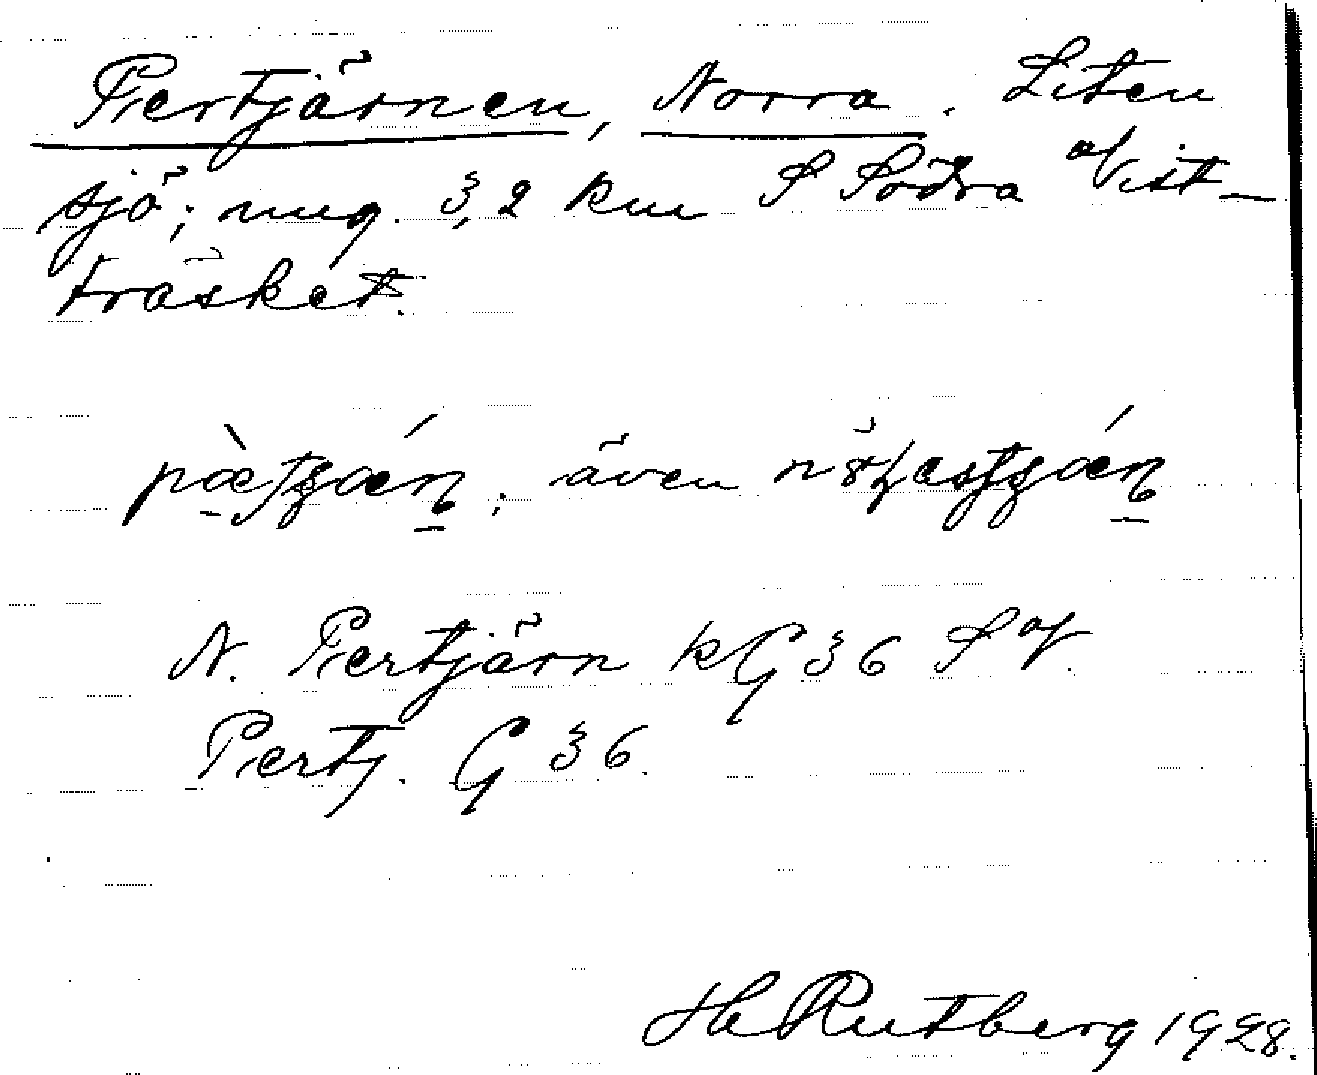 Pertjärnen, Norra. Liten
sjö; ung. 3,2 km S Södra Vist-
träsket.
även
N. Pertjärn kG 36 SV.
Pertj. G 36.
H Rutberg 1928.